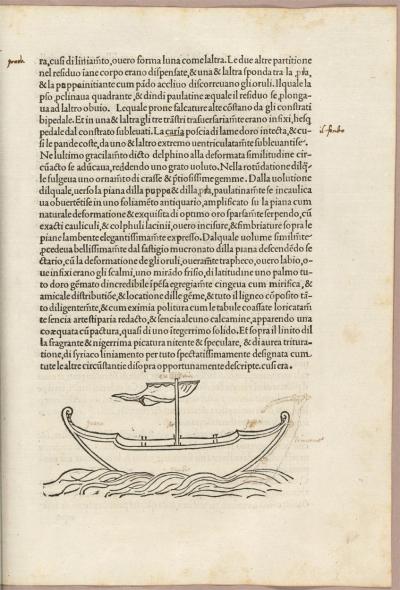 ra, cusi di liniamẽto, ouero forma luna come laltra. Le due altre partitione
nel residuo ĩane corpo erano dispensate, & una & laltra sponda tra la prora,
& la puppa initiante cum pãdo accliuo discorreuano gli oruli. Il quale la
pso pclinaua quadrante, & dindi paulatine æquale il residuo se plonga-
ua ad laltro obuio. Lequale prone falcature alte cõstano da gli constrati
bipedale. Et in una & laltra gli tre trãstri trasuersariamẽte erano infixi, hesq
pedale dal constrato subleuati. La caria poscia di lame doro intecta, & cu-
si le pande coste, da uno & laltro extremo uentriculatamẽte subleuantise.
Ne lultimo gracilamẽto dicto delphino alla deformata similitudine cir-
cũacto se aducaua, reddendo uno grato uoluto. Nella rotũdatione dilq-
le fulgeua uno ornamẽto di crasse & ptiosissime gemme. Dalla uolutione
dilquale, uerso la piana dilla puppa & dilla prora, paulatinamẽte se incaulica
ua obuertẽtise in uno soliamẽto antiquario, amplificato su la piana cum
naturale deformatione & exquisita di optimo oro sparsamẽte serpendo, cũ
exacti cauliculi, & colphuli lacinii, ouero incisure, & fimbriature sopra le
piane lambente elegantissimamẽte expresso. Dalquale uolume similmẽte
pcedeua bellissimamẽte dal fastigio mucronato dilla piana descendẽdo se
ctario, cũ la deformatione de gli oruli, oueramẽte trapheco, ouero labio, o-
ue infixi erano gli scalmi, uno mirãdo friso, di latitudine uno palmo tu-
to doro gẽmato dincredibile ĩpẽsa egregiamẽte cingeua cum mirifica, &
amicale distributiõe, & locatione dille gẽme, & tuto il ligneo cõposito tã-
to diligentemẽte, & cum eximia politura cum le tabule coassate loricatamẽ
te sencia arte stiparia redacto, & sencia alcuno calcamine, apparendo una
coæquata cũpactura, quasi di uno ĩtegerrimo solido. Et sopra il linito dil
la fragrante & nigerrima picatura nitente & speculare, & di aurea tritura-
tione, di syriaco liniamento per tuto spectatissimamente designata cum
tute le altre circũstantie di sopra opportunamente descripte. cusi era.